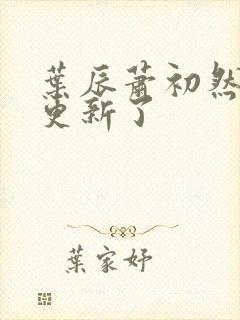 葉辰蕭初然
更新了
葉家妤